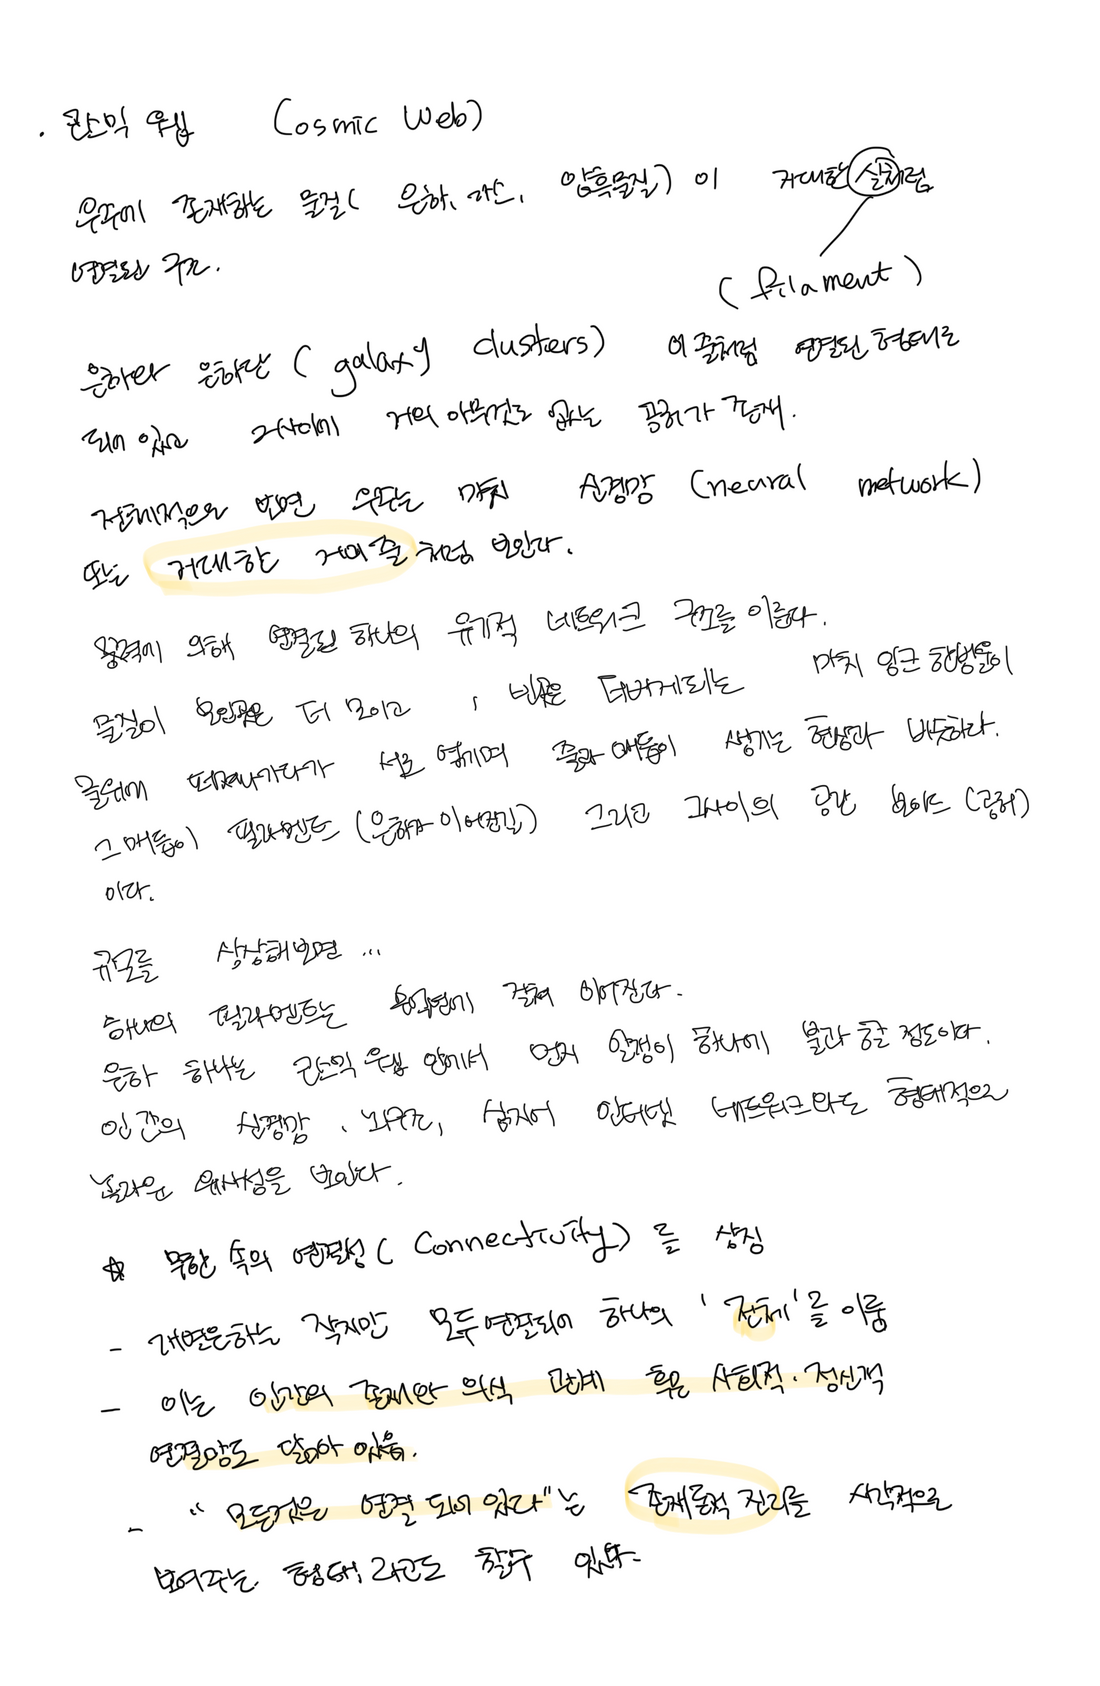 . 코스믹 웹 (Cosmic Web)
우주에 존재하는 물질( 은하, 가스, 암흑물질) 이 거대한 실처럼
연결된 구조.
(filament)
은하와 은하단 ( galaxy clusters) 이 줄처럼 연결된 형태로
되어 있고 그사이에 거의 아무것도 없는 공허가 존재.
전체적으로 보면 우주는 마치 신경망 (neural network)
또는 거대한 거미줄 처럼 보인다.
중력에 의해 연결된 하나의 유기적 네트워크 구조를 이룬다.
물질이 모인곳은 더 모이고 , 빈곳은 더비게되는 마치 잉크 한방울이
물위에 퍼져나가다가 서로 엮이며 줄과 매듭이 생기는 현상과 비슷하다.
그 매듭이 필라멘트 (은하가 이어진길) 그리고 그사이의 공간 보이드 (공허)
이다.
규모를 상상해보면 ...
하나의 필라멘트는 수억년에 걸쳐 이어진다.
은하 하나는 코스믹 웹 안에서 먼지 알갱이 하나에 불과 할 정도이다.
인간의 신경망 , 뇌구조, 심지어 인터넷 네트워크와도 형태적으로
놀라운 유사성을 보인다.
☆ 무한 속의 연결성 ( Connectivity) 를 상징
- 개별은하는 작지만 모두 연결되어 하나의 '전체'를 이룸
- 이는 인간의 존재와 의식 관계 혹은 사회적 · 정신적
연결망도 닮아 있음.
- "모든것은 연결 되어 있다"는 존재론적 진리를 시각적으로
보여주는 형태, 라고도 할수 있다.